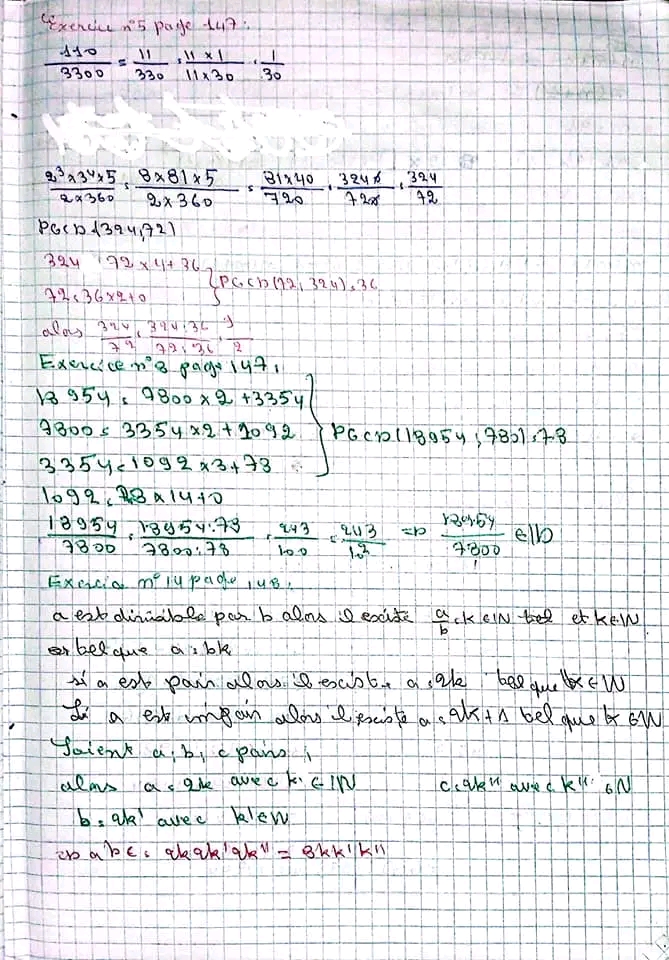 Exercice n°5 page 147:
110/3300 = 11/330 = 11×1/11×30 = 1/30
2³×3⁴×5/2×360 = 8×81×5/2×360 = 81×40/720 = 3240/720 = 324/72
PGCD(324,72)
324 72×4+36
72=36×2+0
PGCD(72,324)=36
alors 324/72 = 324:36/72:36 = 9/2
Exercice n°8 page 147:
18954 = 7800×2+3354
7800 = 3354×2+1092
3354=1092×3+78
1092=78×14+0
PGCD(18954;780)=78
18954/7800 = 18954:78/7800:78 = 243/100 = 243/10² => 18954/7800 ∈ID
Exercice n°14 page 148:
a est divisible par b alors il existe a/b=k ∈IN tel et k∈IN
tel que a=bk
si a est pair alors il existe a=2k tel que k∈IN
Si a est impair alors il existe a=2k+1 tel que k∈IN
Soient a,b,c pairs,
alors a=2k avec k∈IN c=2k'' avec k''∈N
b=2k' avec k'∈IN
=> abc = 2k2k'2k'' = 8kk'k''